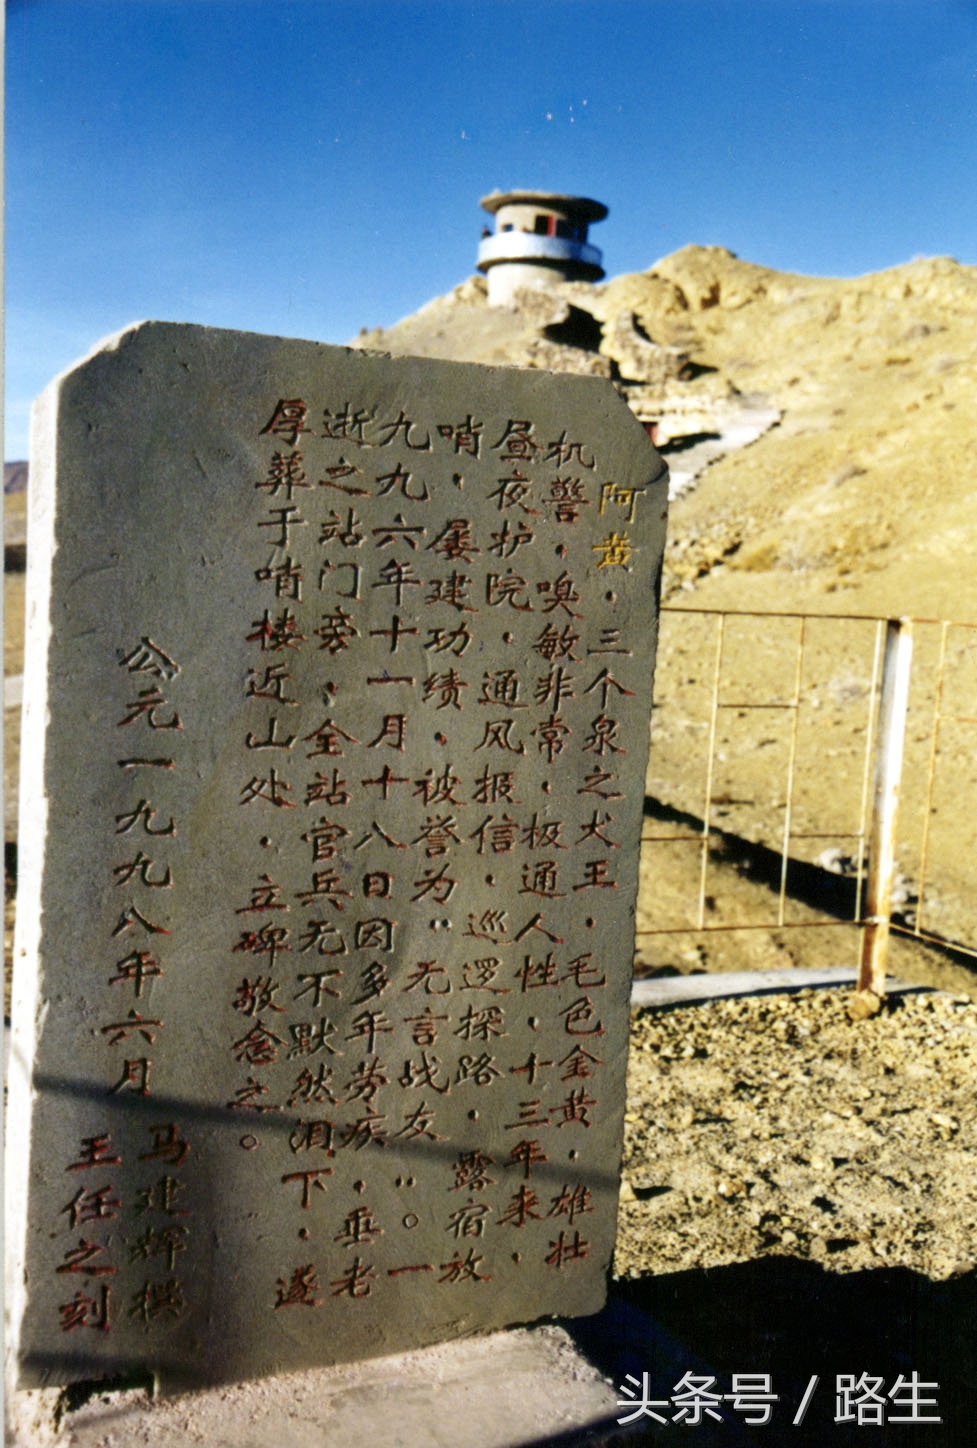 阿黄，三个泉之犬王，毛色金黄，雄壮
机警，嗅敏非常，极通人性，十三年来，
昼夜护院，通风报信，巡逻探路，露宿放
哨，屡建功绩，被誉为“无言战友”。一
九九六年十一月十八日因多年劳疾，垂老
逝之站门旁，全站官兵无不默然泪下，遂
厚葬于哨楼近山处，立碑敬念之。
公元一九九八年六月 马建辉撰
王任之刻
头条号 / 路生